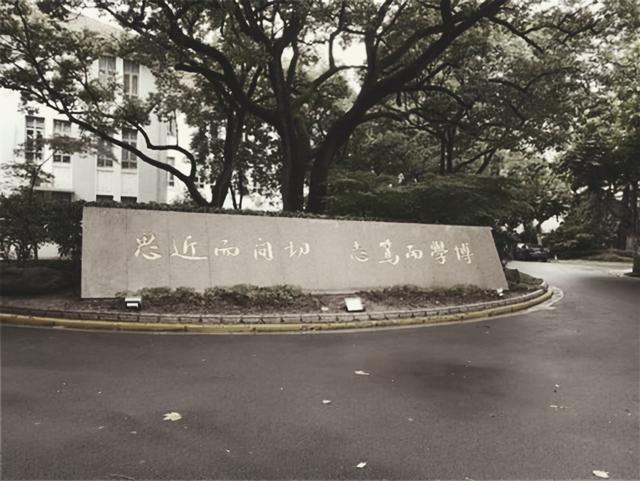 博學而篤志 切问而近思